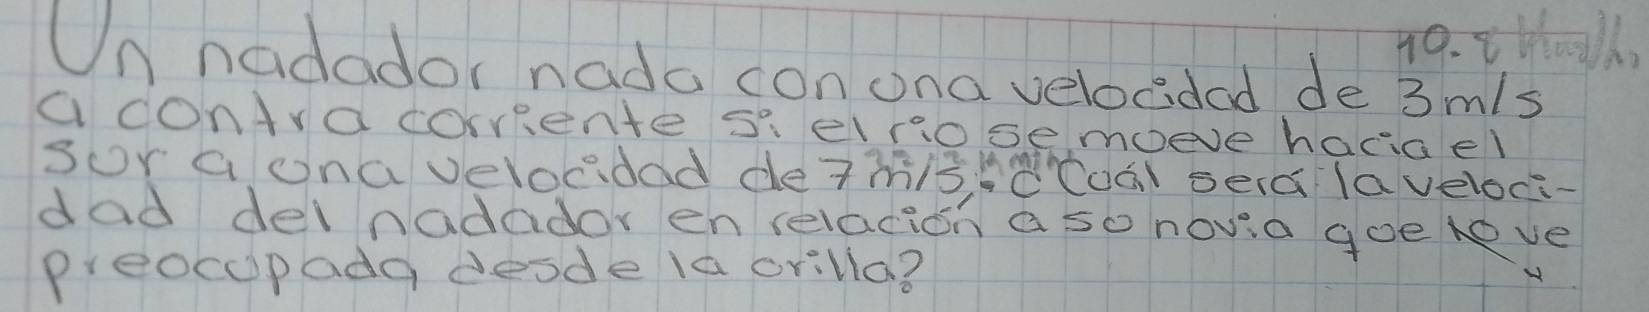 Un nadador nada con una velocidad de 3m/s
a contra corriente si el río se mueve hacia el
sur a una velocidad de 7m/s, ¿Cuál será la veloci-
dad del nadador en relación a su novia que lo ve
preocupada desde la orilla?